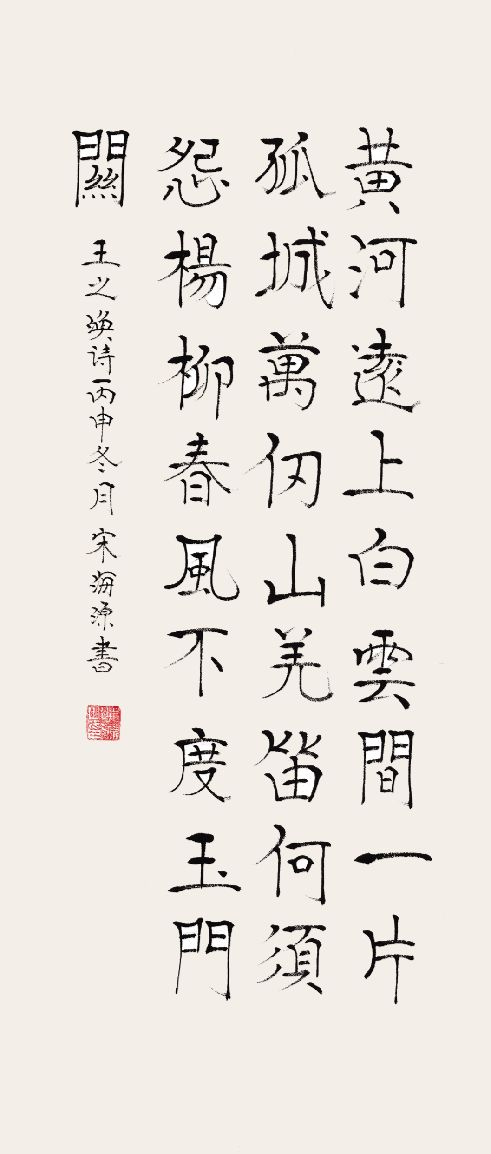 黃河遠上白雲間一片
孤城萬仞山羌笛何須
怨楊柳春風不度玉門
關
王之渙诗丙申冬月宋海源書